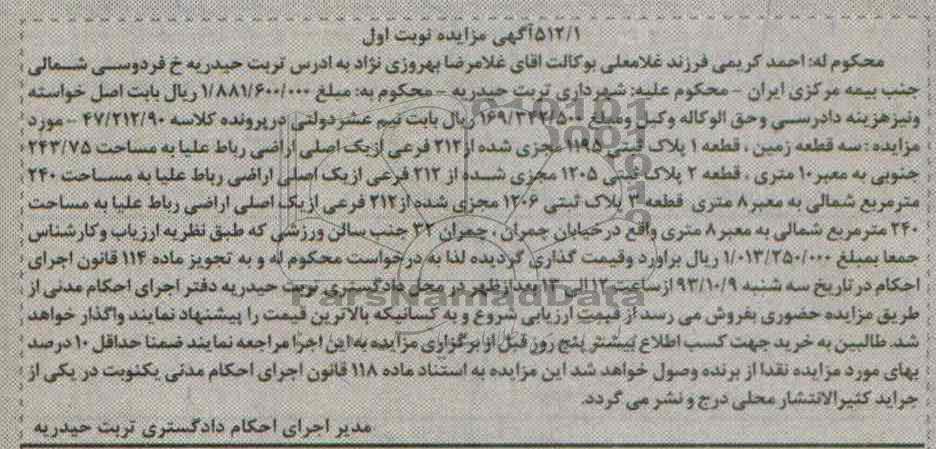 ۵۱۲/۱آگهی مزایده نوبت اول
محکوم له: احمد کریمی فرزند غلامعلی بوکالت اقای غلامرضا بهروزی نژاد به ادرس تربت حیدریه خ فردوسی شمالی
جنب بیمه مرکزی ایران - محکوم علیه: شهرداری تربت حیدریه - محکوم به: مبلغ ۱/۸۸۱/۶۰۰/۰۰۰ ریال بابت اصل خواسته
ونیزهزینه دادرسی وحق الوکاله وکیل ومبلغ ۱۶۹/۳۴۲/۵۰۰ ریال بابت نیم عشردولتی درپرونده کلاسه ۴۷/۲۱۲/۹۰ - مورد
مزایده : سه قطعه زمین ، قطعه ۱ پلاک ثبتی ۱۱۹۵ مجزی شده از۲۱۲ فرعی ازیک اصلی اراضی رباط علیا به مساحت ۲۴۳/۷۵
جنوبی به معبر۱۰ متری ، قطعه ۲ پلاک ثبتی ۱۲۰۵ مجزی شده از ۲۱۲ فرعی ازیک اصلی اراضی رباط علیا به مساحت ۲۴۰
مترمربع شمالی به معبر۸ متری قطعه ۳ پلاک ثبتی ۱۲۰۶ مجزی شده از۲۱۲ فرعی ازیک اصلی اراضی رباط علیا به مساحت
۲۴۰ مترمربع شمالی به معبر۸ متری واقع درخیابان چمران ، چمران ۳۲ جنب سالن ورزشی که طبق نظریه ارزیاب وکارشناس
جمعا بمبلغ ۱/۰۱۳/۲۵۰/۰۰۰ ریال براورد وقیمت گذاری گردیده لذا به درخواست محکوم له و به تجویز ماده ۱۱۴ قانون اجرای
احکام درتاریخ سه شنبه ۹۳/۱۰/۹ ازساعت ۱۲ الی ۱۳ بعدازظهر در محل دادگستری تربت حیدریه دفتر اجرای احکام مدنی از
طریق مزایده حضوری بفروش می رسد از قیمت ارزیابی شروع و به کسانیکه بالاترین قیمت را پیشنهاد نمایند واگذار خواهد
شد. طالبین به خرید جهت کسب اطلاع بیشتر پنج روز قبل ازبرگزاری مزایده به این اجرا مراجعه نمایند ضمنا حداقل ۱۰ درصد
بهای مورد مزایده نقدا از برنده وصول خواهد شد این مزایده به استناد ماده ۱۱۸ قانون اجرای احکام مدنی یکنوبت در یکی از
جراید کثیرالانتشار محلی درج و نشر می گردد.
مدیر اجرای احکام دادگستری تربت حیدریه
ParsNamadData